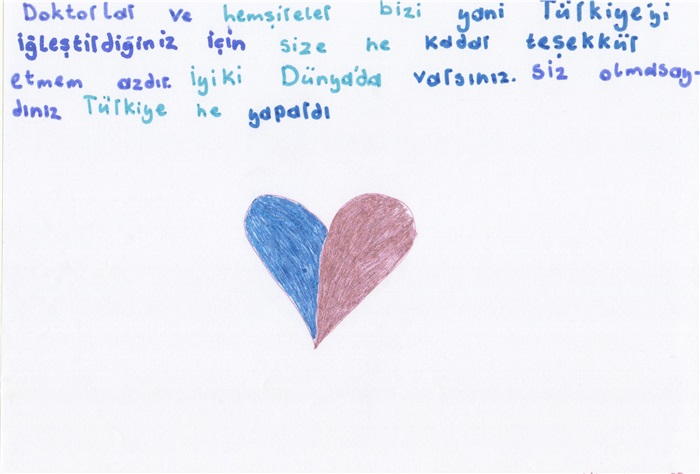 Doktorlar ve hemşireler bizi yani Türkiye'yi
iğleştirdiğiniz için size ne kadar teşekkür
etmem azdır. İyiki Dünya'da varsınız. Siz olmasay-
dınız Türkiye ne yapardı